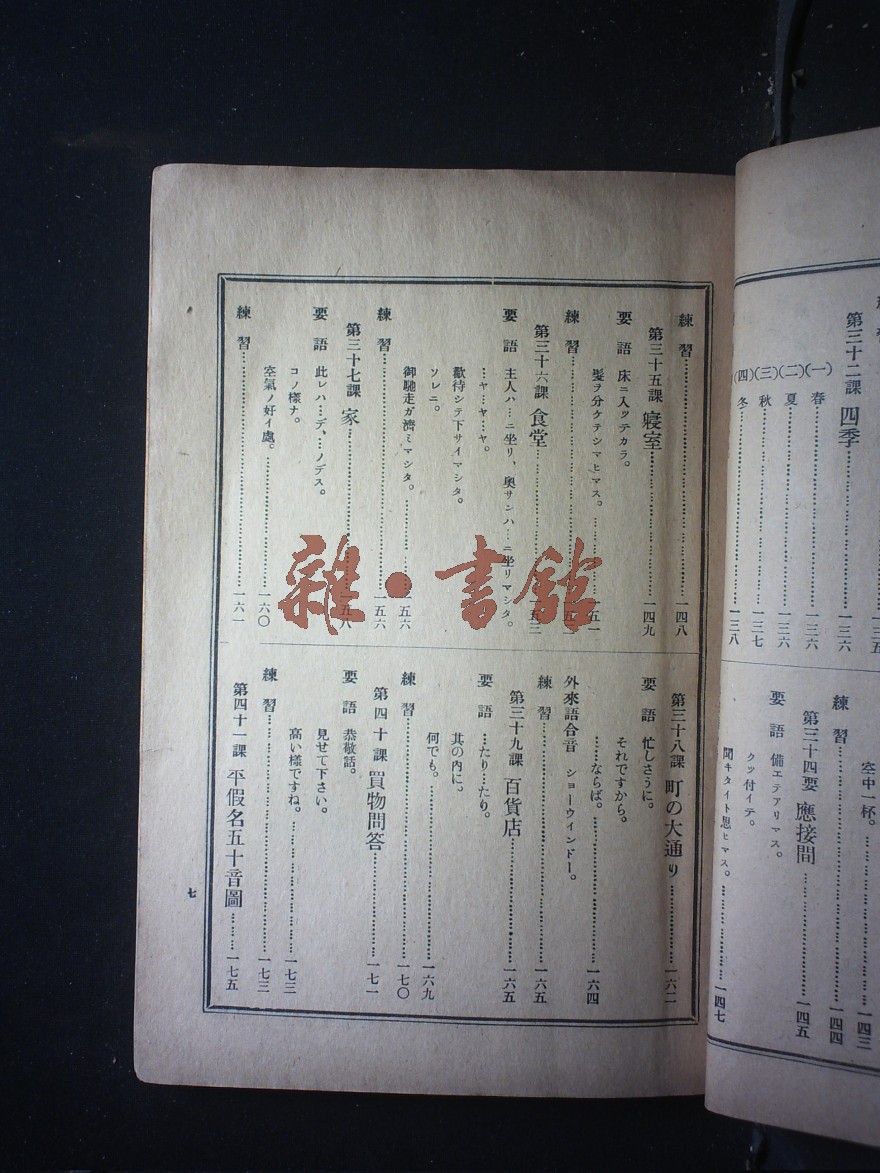 第三十二課 四季……一三六
(一) 春……一三六
(二) 夏……一三六
(三) 秋……一三七
(四) 冬……一三八
空中一杯。……一四三
練習……一四四
第三十四要 應接間……一四五
要語 備エテアリマス。
クッ付イテ。
聞キタイト思ヒマス。……一四七
練習……一四八
第三十五課 寢室……一四九
要語 床ニ入ッテカラ。
髮ヲ分ケテシマヒマス。……一五一
練習……
第三十六課 食堂……
要語 主人ハ…ニ坐リ、奧サンハ…ニ坐リマシタ。
…ヤ…ヤ…ヤ。
歡待シテ下サイマシタ。
ソレニ。
御馳走ガ濟ミマシタ。……一五六
練習……一五六
第三十七課 家……一五八
要語 此レハ…デ、…ノデス。
コノ樣ナ。
空氣ノ好イ處。……一六〇
練習……一六一
第三十八課 町の大通り……一六二
要語 忙しさうに。
それですから。
……ならば。……一六四
外來語合音 ショーウインドー。
練習……一六五
第三十九課 百貨店……一六五
要語 …たり…たり。
其の內に。
何でも。……一六九
練習……一七〇
第四十課 買物問答……一七一
要語 恭敬話。
見せて下さい。
高い樣ですね。……一七三
練習……一七三
第四十一課 平假名五十音圖……一七五
七
雜·書館